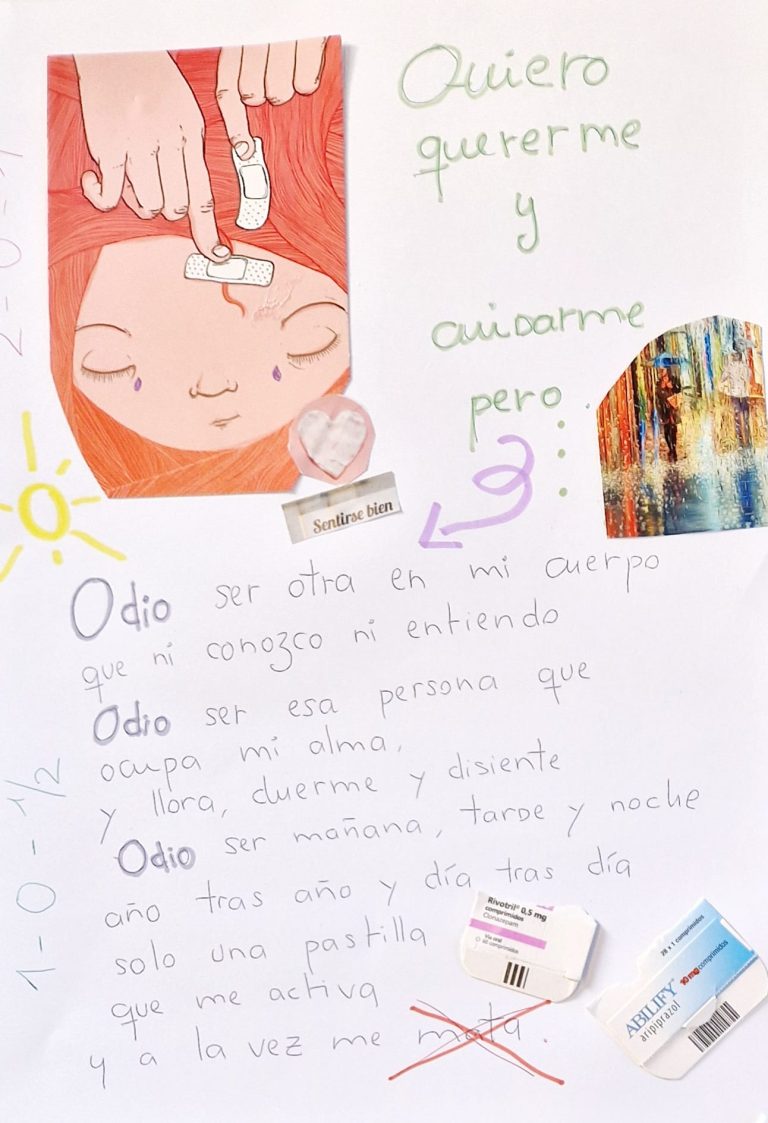 Quiero
quererme
y
cuidarme
pero...
Sentirse bien
Odio ser otra en mi cuerpo
que ni conozco ni entiendo
Odio ser esa persona que
ocupa mi alma,
y llora, duerme y disiente
Odio ser mañana, tarde y noche
año tras año y día tras día
solo una pastilla
que me activa
y a la vez me mata.
Rivotril® 0,5 mg
comprimidos
Clonazepam
Vía oral
60 comprimidos
28 x 1 comprimidos
ABILIFY® 10 mg comprimidos
aripiprazol
1-0-1/2